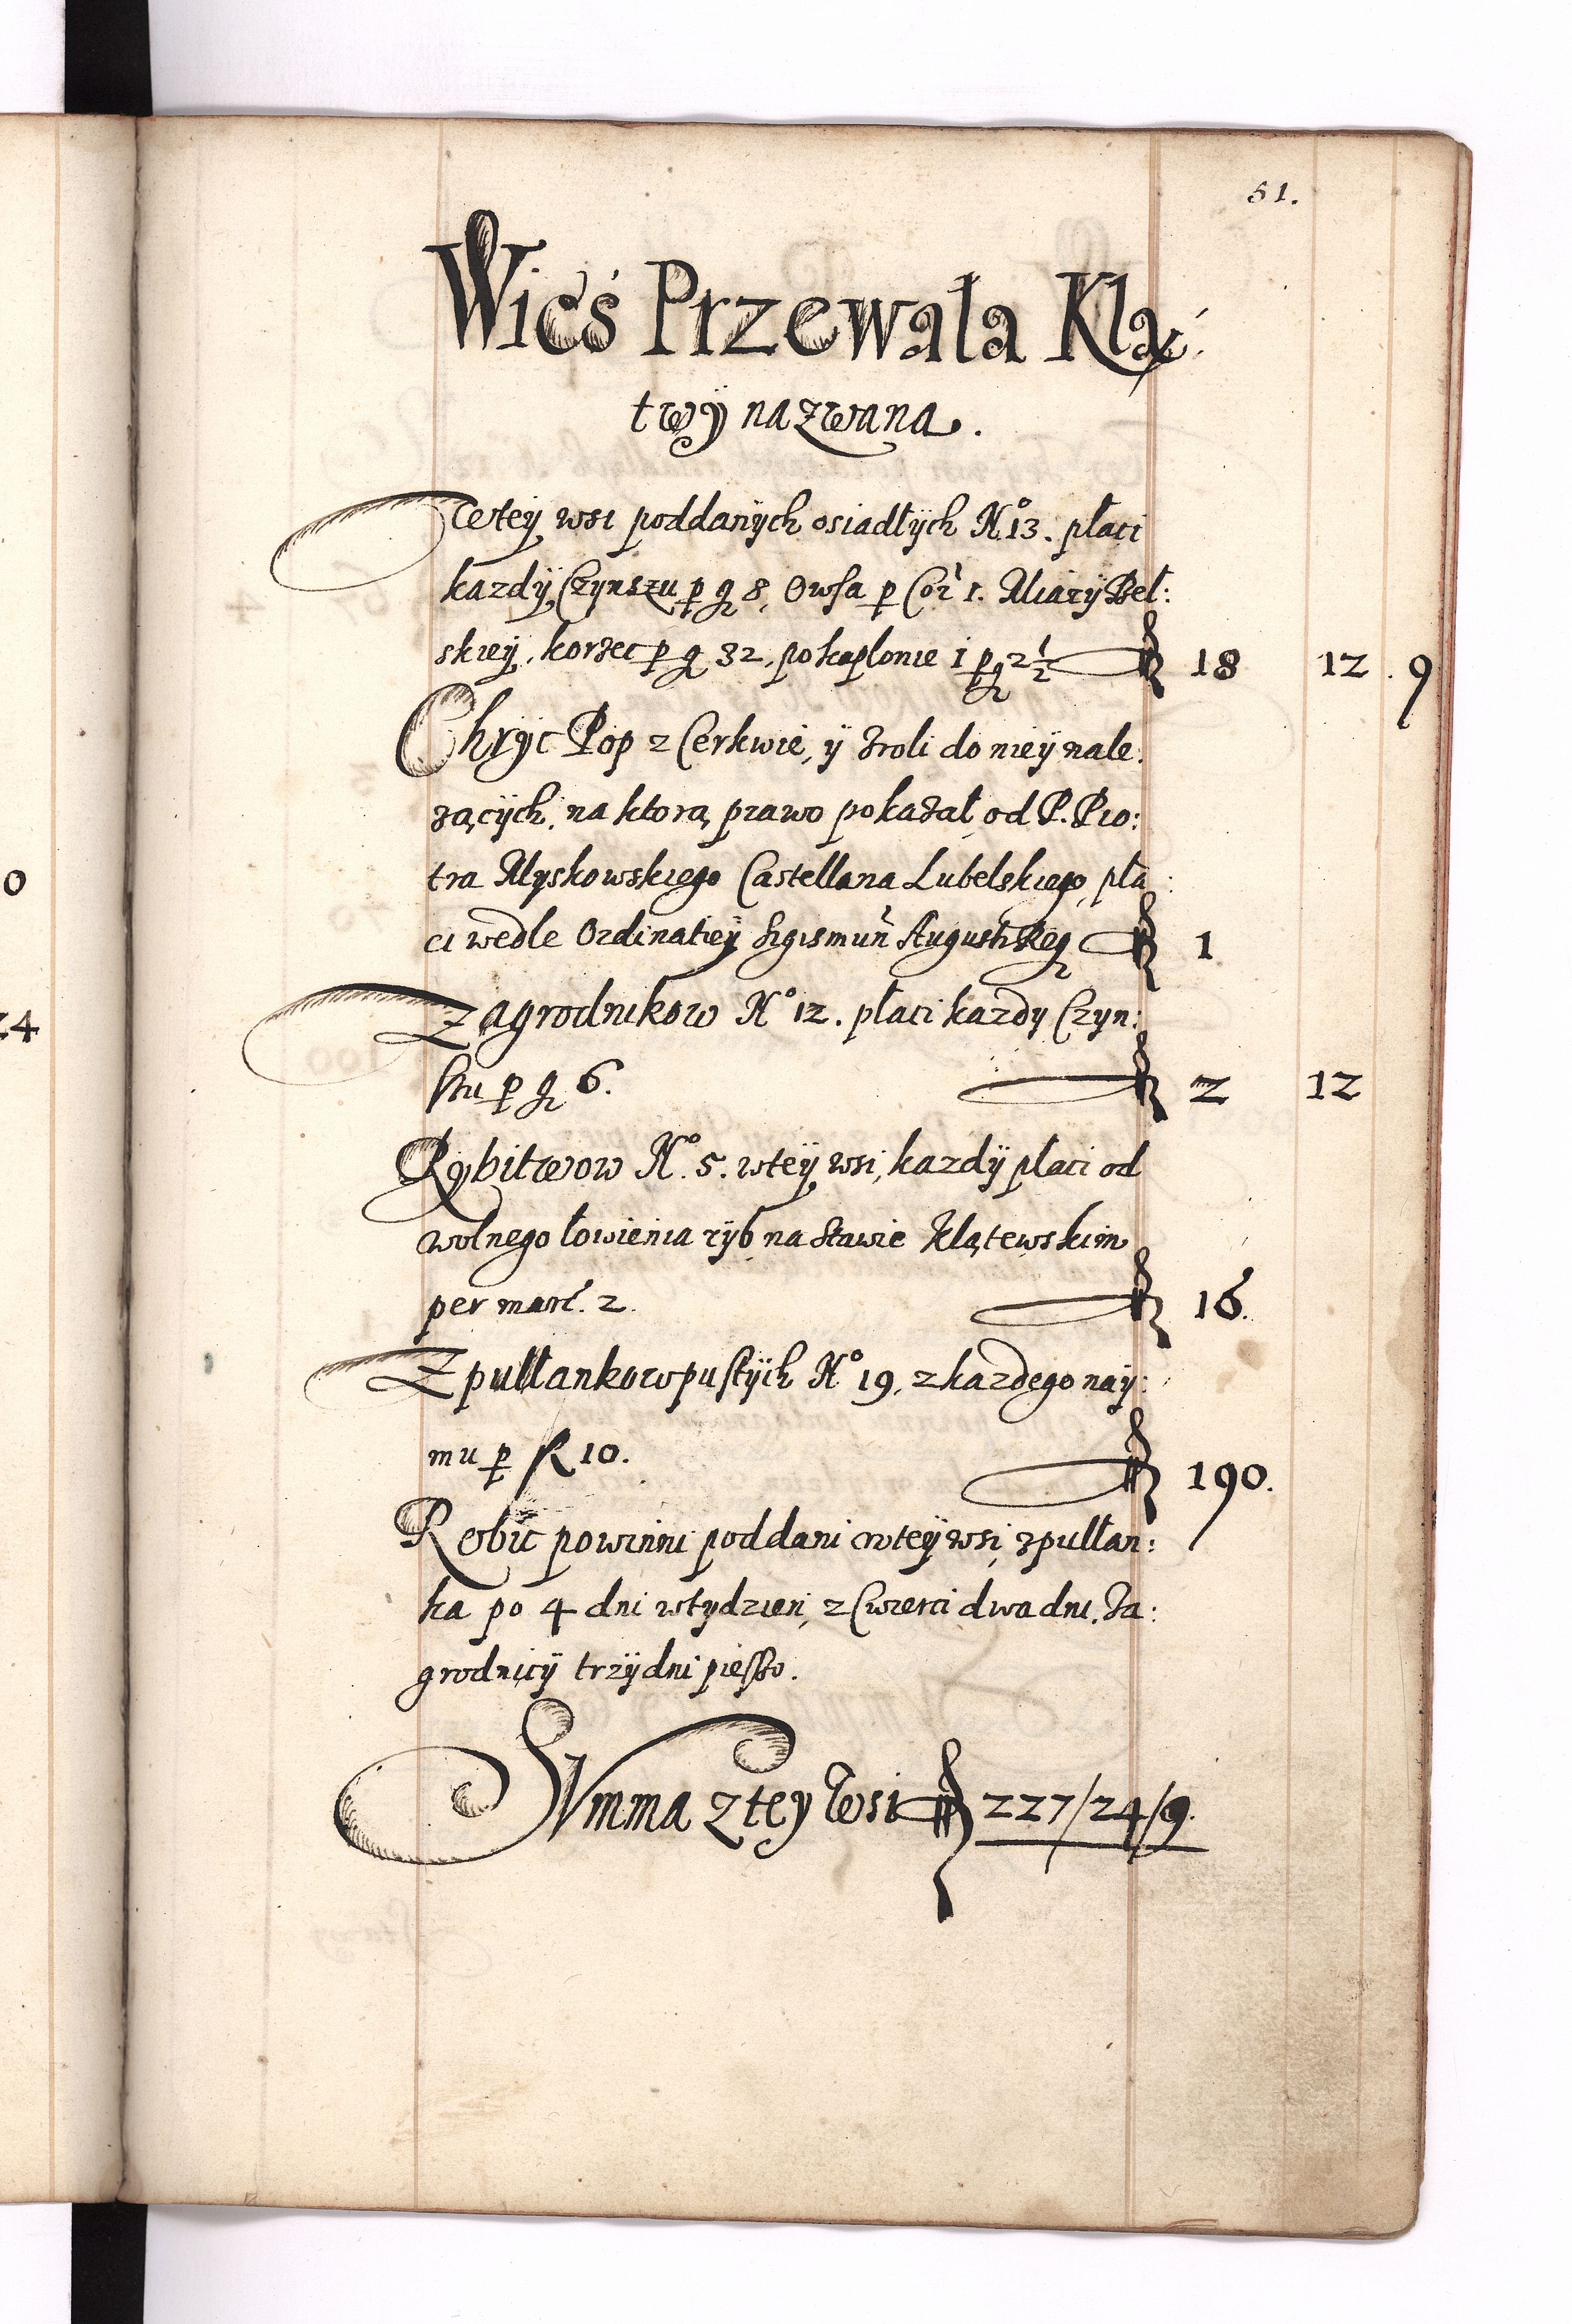 51.
Wieś Przewała Klą:
twÿ nazwana.
W tey wsi poddanÿch osiadłÿch No 13. płaci
kazdÿ Czynszu p g 8, Owsa p Cor 1. Miarÿ Beł:
skieÿ, korzec p g 32, po kapłonie 1 p g 2 1/2 18 12 9
Chrÿc Pop z Cerkwie, ÿ z roli do nieÿ nale:
zącÿch, na ktorą prawo pokazał od P. Pio:
tra Myskowskiego Castellana Lubelskiego, pła:
ci wedle Ordinatieÿ Sigismun Augusti Reg 1
Zagrodnikow No 12. płaci kazdy Czyn:
szu p g 6. 2 12
Rÿbitwow No. 5. w teÿ wsi, kazdÿ płaci od
wolnego łowienia rÿb na Stawie Klątewskim
per mart. 2. 16.
Z pułłankow pustÿch No 19, z kazdego naÿ:
mu p 10. 190.
Robic powinni poddani w teÿ wsi, z pułłan:
ka po 4 dni w tydzien, z Cwierci dwa dni. Za:
grodnicÿ trzÿ dni pieszo.
Summa z tey Wsi 227/24/9.
0
24